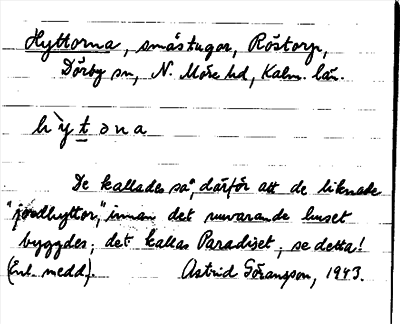 Hyttorna, småstugor, Röstorp,
Dörby sn, N. Möre hd, Kalm. län.
hy̆təna
De kallades så, därför att de liknade
"jordhyttor," innan det nuvarande huset
byggdes; det kallas Paradiset; se detta!
(Enl. medd). Astrid Göransson, 1943.